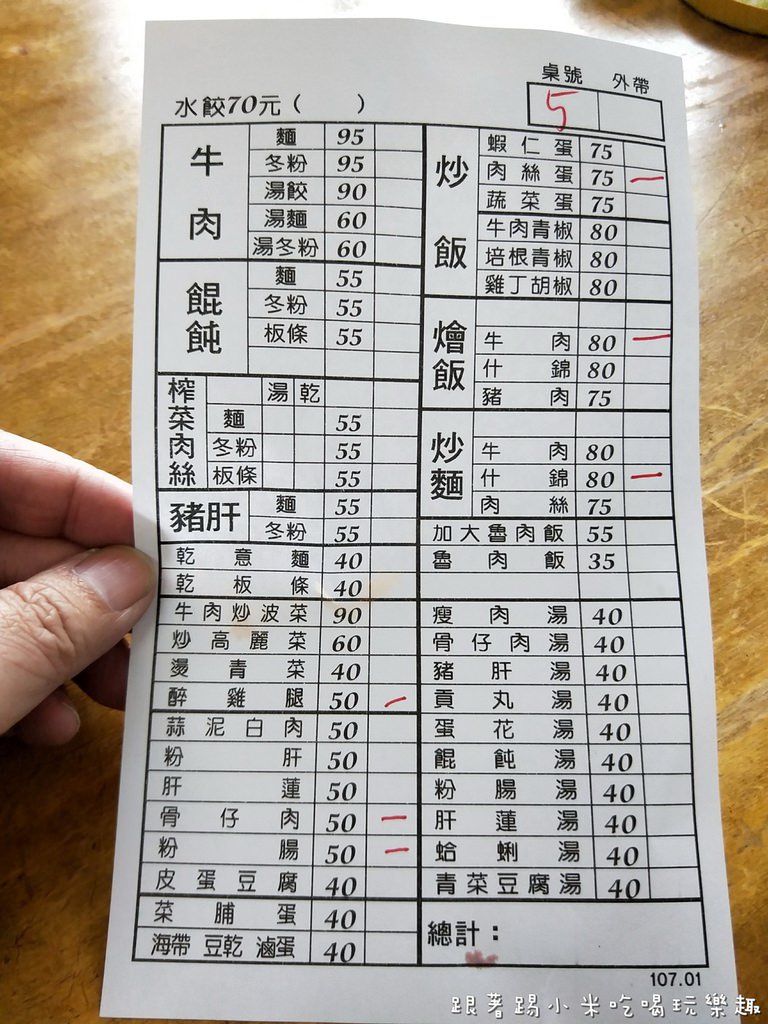 桌號 外帶
水餃70元( ) 5
牛肉
麵 95
冬粉 95
湯餃 90
湯麵 60
湯冬粉 60
餛飩
麵 55
冬粉 55
板條 55
榨菜肉絲
湯 乾
麵 55
冬粉 55
板條 55
豬肝
麵 55
冬粉 55
乾意麵 40
乾板條 40
牛肉炒波菜 90
炒高麗菜 60
燙青菜 40
醉雞腿 50 一
蒜泥白肉 50
粉肝 50
肝蓮 50
骨仔肉 50 一
粉腸 50 一
皮蛋豆腐 40
菜脯蛋 40
海帶 豆乾 滷蛋 40
炒飯
蝦仁蛋 75
肉絲蛋 75 一
蔬菜蛋 75
牛肉青椒 80
培根青椒 80
雞丁胡椒 80
燴飯
牛肉 80 一
什錦 80
豬肉 75
炒麵
牛肉 80
什錦 80 一
肉絲 75
加大魯肉飯 55
魯肉飯 35
瘦肉湯 40
骨仔肉湯 40
豬肝湯 40
貢丸湯 40
蛋花湯 40
餛飩湯 40
粉腸湯 40
肝蓮湯 40
蛤蜊湯 40
青菜豆腐湯 40
總計：
107.01
跟著踢小米吃喝玩樂趣